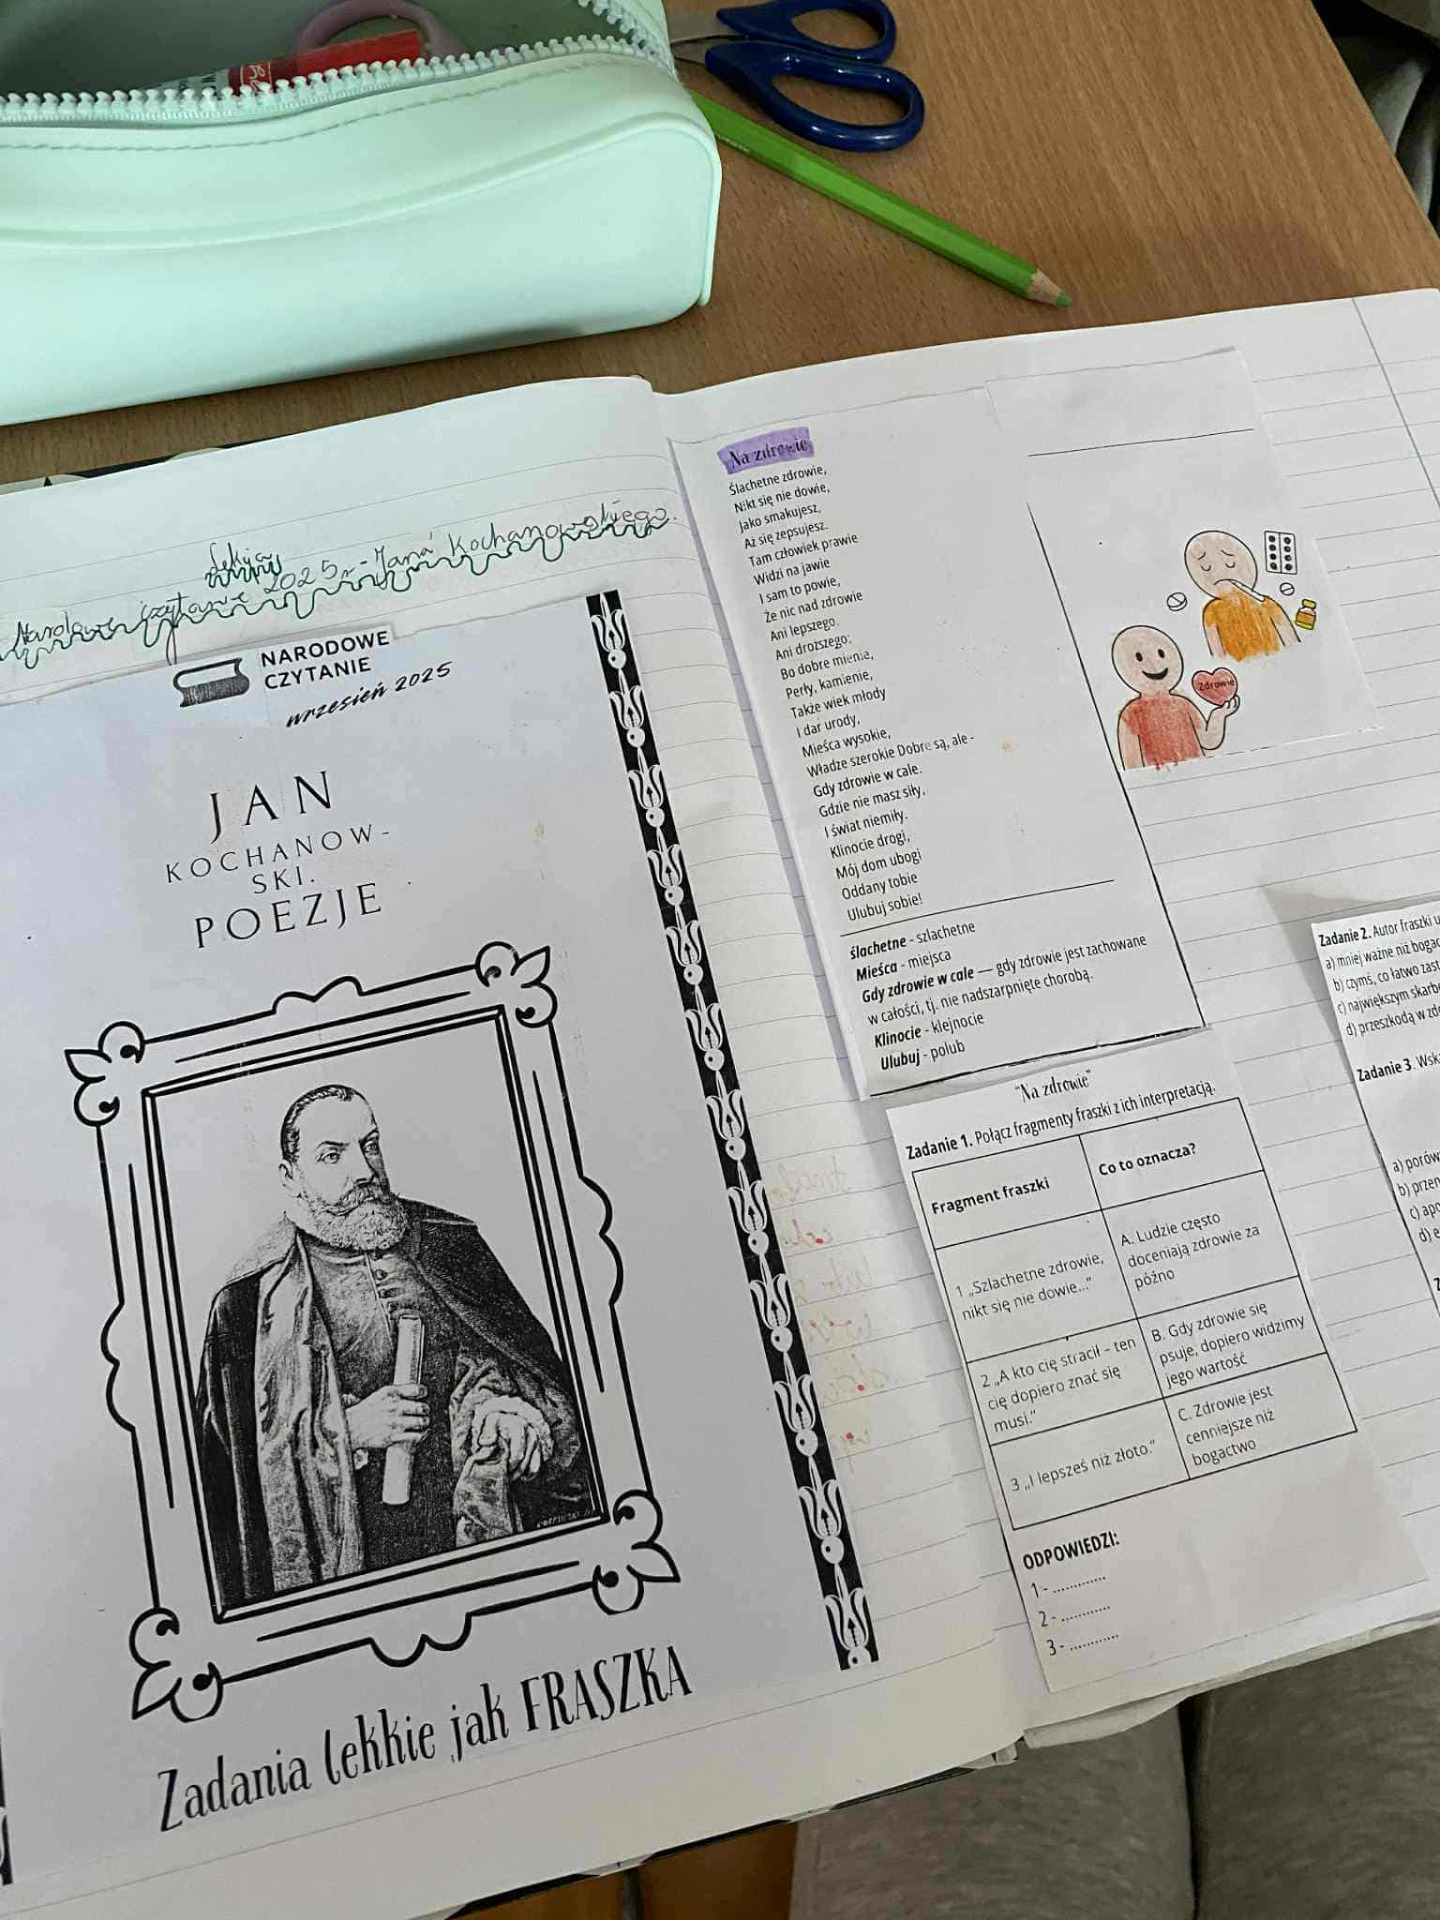 Lekcja
Narodowe czytanie 2025r - Jana Kochanowskiego.
NARODOWE
CZYTANIE
wrzesień 2025
JAN
KOCHANOW-
SKI.
POEZJE
Zadania lekkie jak FRASZKA
Na zdrowie
Ślachetne zdrowie,
Nikt się nie dowie,
Jako smakujesz,
Aż się zepsujesz.
Tam człowiek prawie
Widzi na jawie
I sam to powie,
Że nic nad zdrowie
Ani lepszego.
Ani droższego;
Bo dobre mienie,
Perły, kamienie,
Także wiek młody
I dar urody,
Mieśca wysokie,
Władze szerokie Dobre są, ale -
Gdy zdrowie w cale.
Gdzie nie masz siły,
I świat niemiły.
Klinocie drogi,
Mój dom ubogi
Oddany tobie
Ulubuj sobie!
ślachetne - szlachetne
Mieśca - miejsca
Gdy zdrowie w cale — gdy zdrowie jest zachowane
w całości, tj. nie nadszarpnięte chorobą.
Klinocie - klejnocie
Ulubuj - polub
Zdrowie
"Na zdrowie"
Zadanie 1. Połącz fragmenty fraszki z ich interpretacją.
Fragment fraszki
Co to oznacza?
1 „Szlachetne zdrowie,
nikt się nie dowie..."
A. Ludzie często
doceniają zdrowie za
późno
2 „A kto cię stracił - ten
cię dopiero znać się
musi."
B. Gdy zdrowie się
psuje, dopiero widzimy
jego wartość
3 „I lepsześ niż złoto."
C. Zdrowie jest
cenniejsze niż
bogactwo
ODPOWIEDZI:
1 - ............
2 - ............
3 - ............
Zadanie 2. Autor fraszki
a) mniej ważne niż
b) czymś, co łatwo
c) największym
d) przeszkodą w
Zadanie 3.
a)
b)
c)
d)